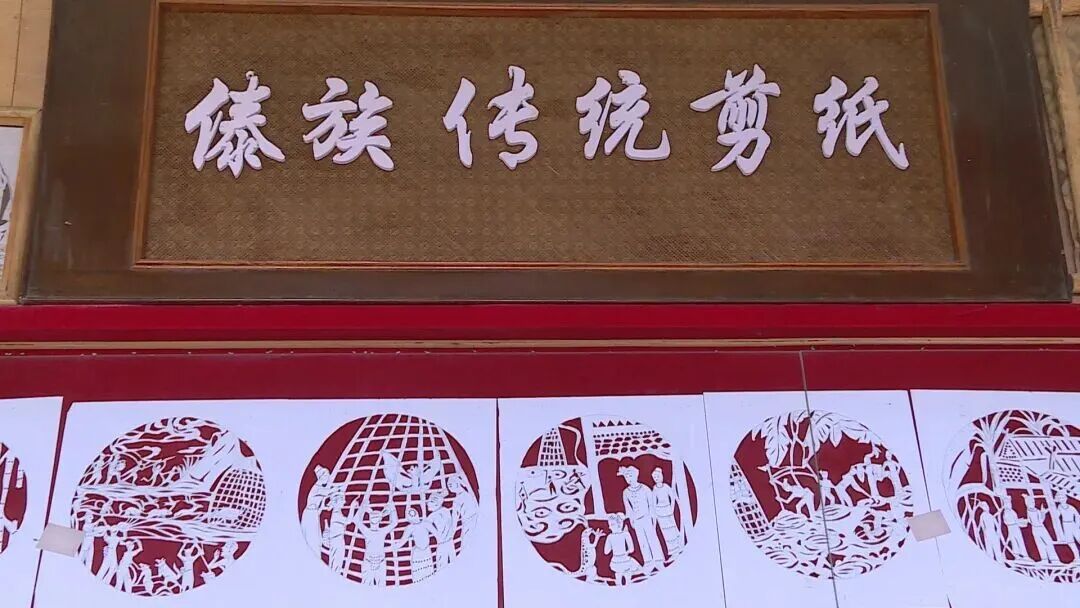 傣族传统剪纸